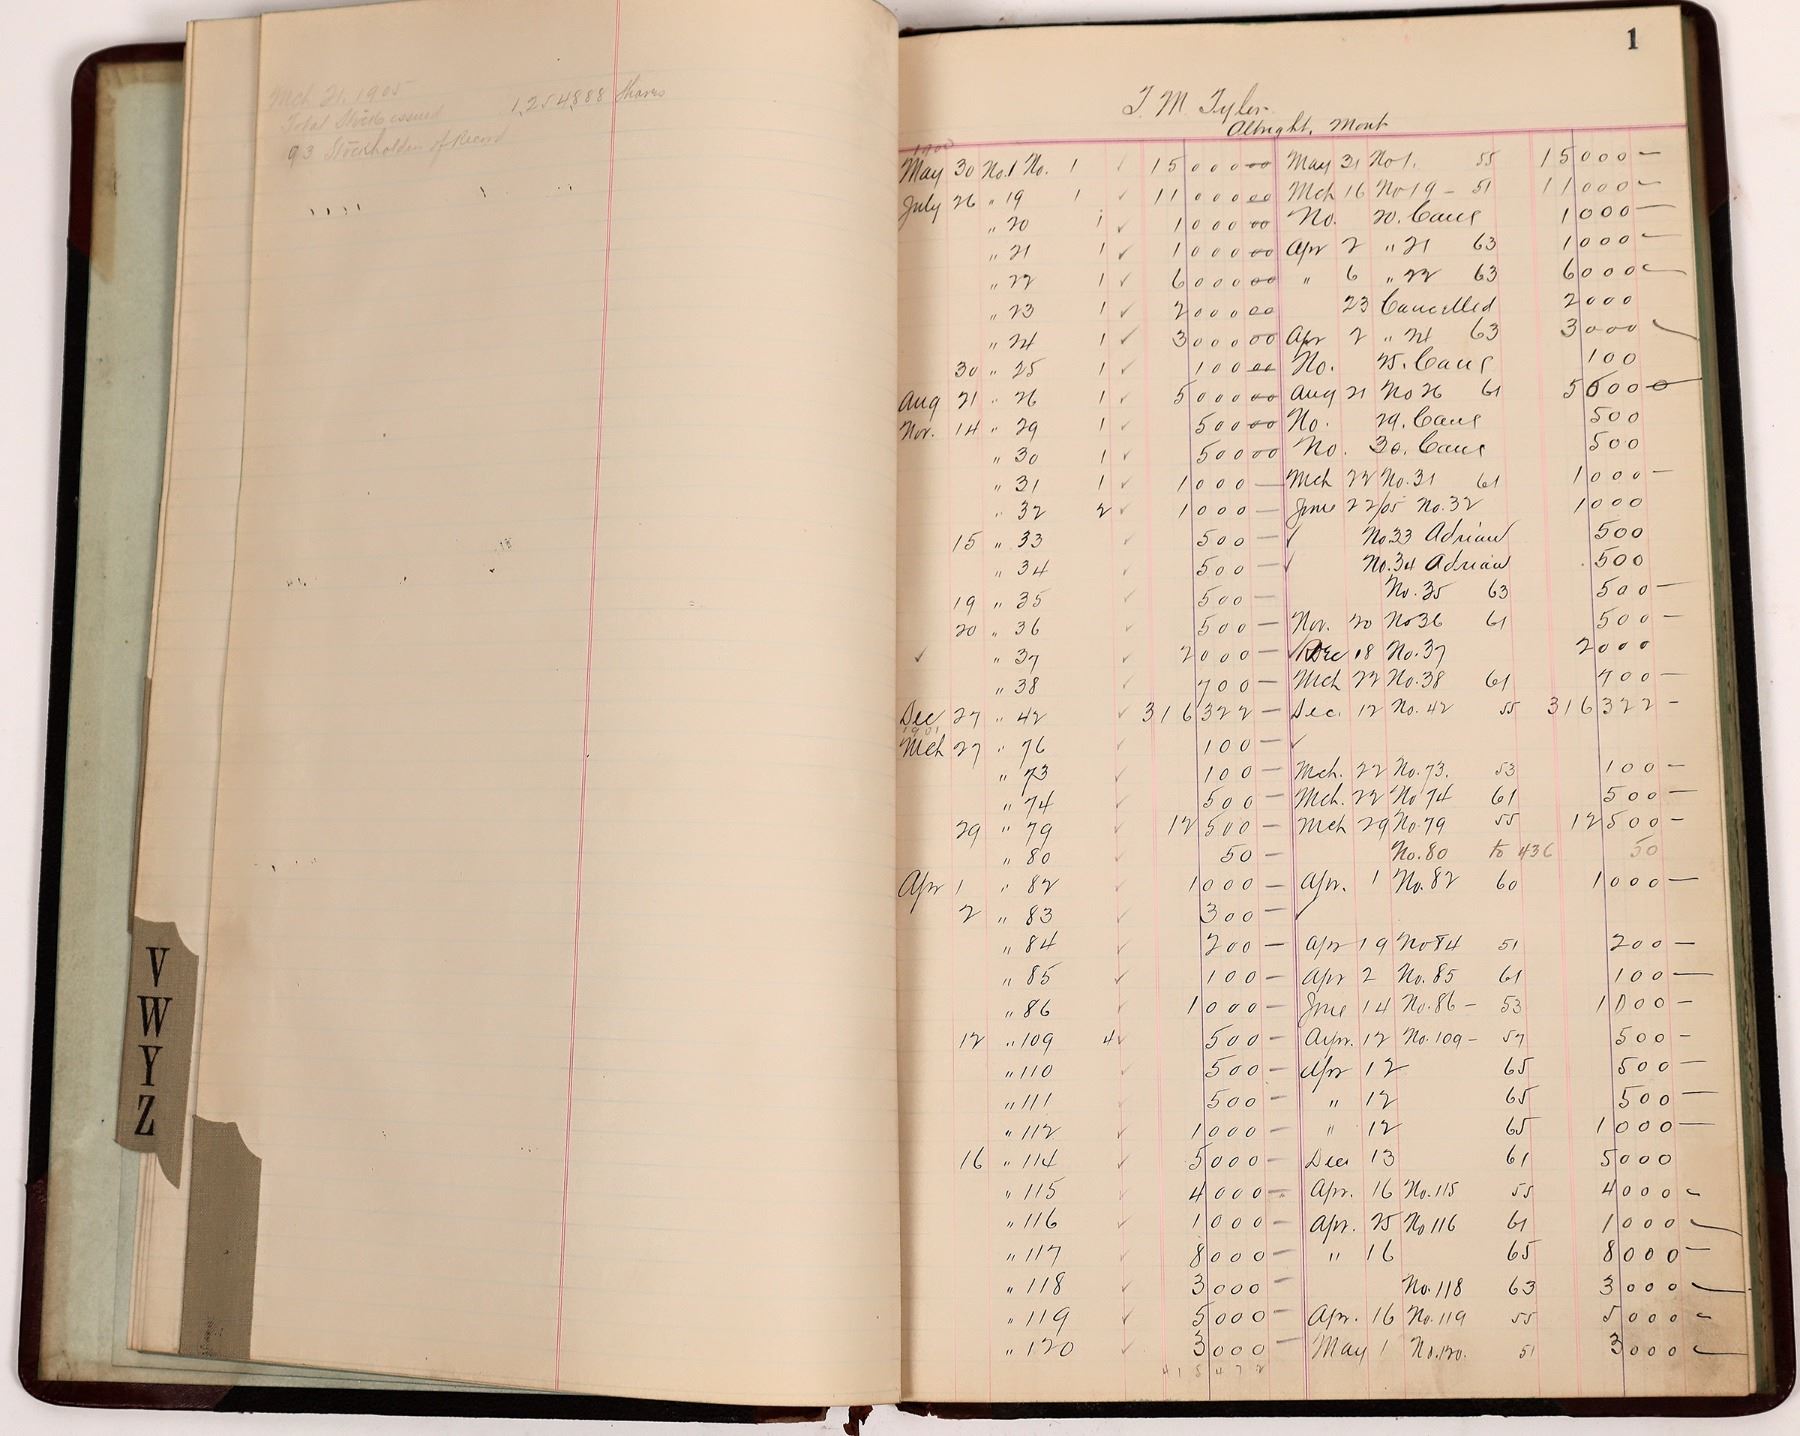 Mch 21, 1905
Total Stock issued 1,254,888 Shares
93 Stockholders of Record
V
W
Y
Z
1
T. M. Tyler
Albright, Mont
1900
May 30 No.1 No. 1 ✓ 15 000 00 May 31 No 1. 55 15 000 —
July 26 " 19 1 ✓ 11 000 00 Mch 16 No 19 - 51 11 000 —
" 20 1 ✓ 1 000 00 No. 20. Canc 1 000 —
" 21 1 ✓ 1 000 00 Apr 2 " 21 63 1 000 —
" 22 1 ✓ 6 000 00 " 6 " 22 63 6 000 —
" 23 1 ✓ 2 000 00 23 Cancelled 2 000
" 24 1 ✓ 3 000 00 Apr 2 " 24 63 3 000
30 " 25 1 ✓ 100 00 No. 25. Canc 100
Aug 21 " 26 1 ✓ 5 000 00 Aug 21 No 26 61 5 000
Nov. 14 " 29 1 ✓ 500 00 No. 29. Canc 500
" 30 1 ✓ 500 00 No. 30. Canc 500
" 31 1 ✓ 1 000 — Mch 22 No. 31 61 1 000 —
" 32 2 ✓ 1 000 — June 22/05 No. 32 1 000
15 " 33 ✓ 500 — ✓ No 33 Adrian 500
" 34 ✓ 500 — ✓ No. 34 Adrian 500
19 " 35 ✓ 500 — No. 35 63 500 —
20 " 36 ✓ 500 — Nov. 20 No 36 61 500 —
✓ " 37 ✓ 2 000 — ✓ Dec 18 No. 37 2 000
" 38 ✓ 700 — Mch 22 No. 38 61 700 —
Dec 27 " 42 ✓ 316 322 — Dec. 12 No. 42 55 316 322 -
1901
Mch 27 " 76 ✓ 100 — ✓
" 73 ✓ 100 — Mch. 22 No. 73. 53 100 —
" 74 ✓ 500 — Mch. 22 No 74 61 500 —
29 " 79 ✓ 12 500 — Mch 29 No. 79 55 12 500 —
" 80 ✓ 50 — No. 80 to 436 50
Apr 1 " 82 ✓ 1 000 — Apr. 1 No. 82 60 1 000 —
2 " 83 ✓ 300 — ✓
" 84 ✓ 200 — Apr 19 No 84 51 200 —
" 85 ✓ 100 — Apr 2 No. 85 61 100 —
" 86 ✓ 1 000 — June 14 No. 86 - 53 1 000 —
12 " 109 4 ✓ 500 — Apr. 12 No. 109 - 57 500 -
" 110 ✓ 500 — Apr 12 65 500 —
" 111 ✓ 500 — " 12 65 500 —
" 112 ✓ 1 000 — " 12 65 1 000 —
16 " 114 ✓ 5 000 — Dec 13 61 5 000
" 115 ✓ 4 000 — Apr. 16 No. 115 55 4 000 —
" 116 ✓ 1 000 — Apr. 25 No 116 61 1 000 —
" 117 ✓ 8 000 — " 16 65 8 000 —
" 118 ✓ 3 000 — No. 118 63 3 000 —
" 119 ✓ 5 000 — Apr. 16 No. 119 55 5 000 —
" 120 ✓ 3 000 — May 1 No. 120. 51 3 000 —
415472